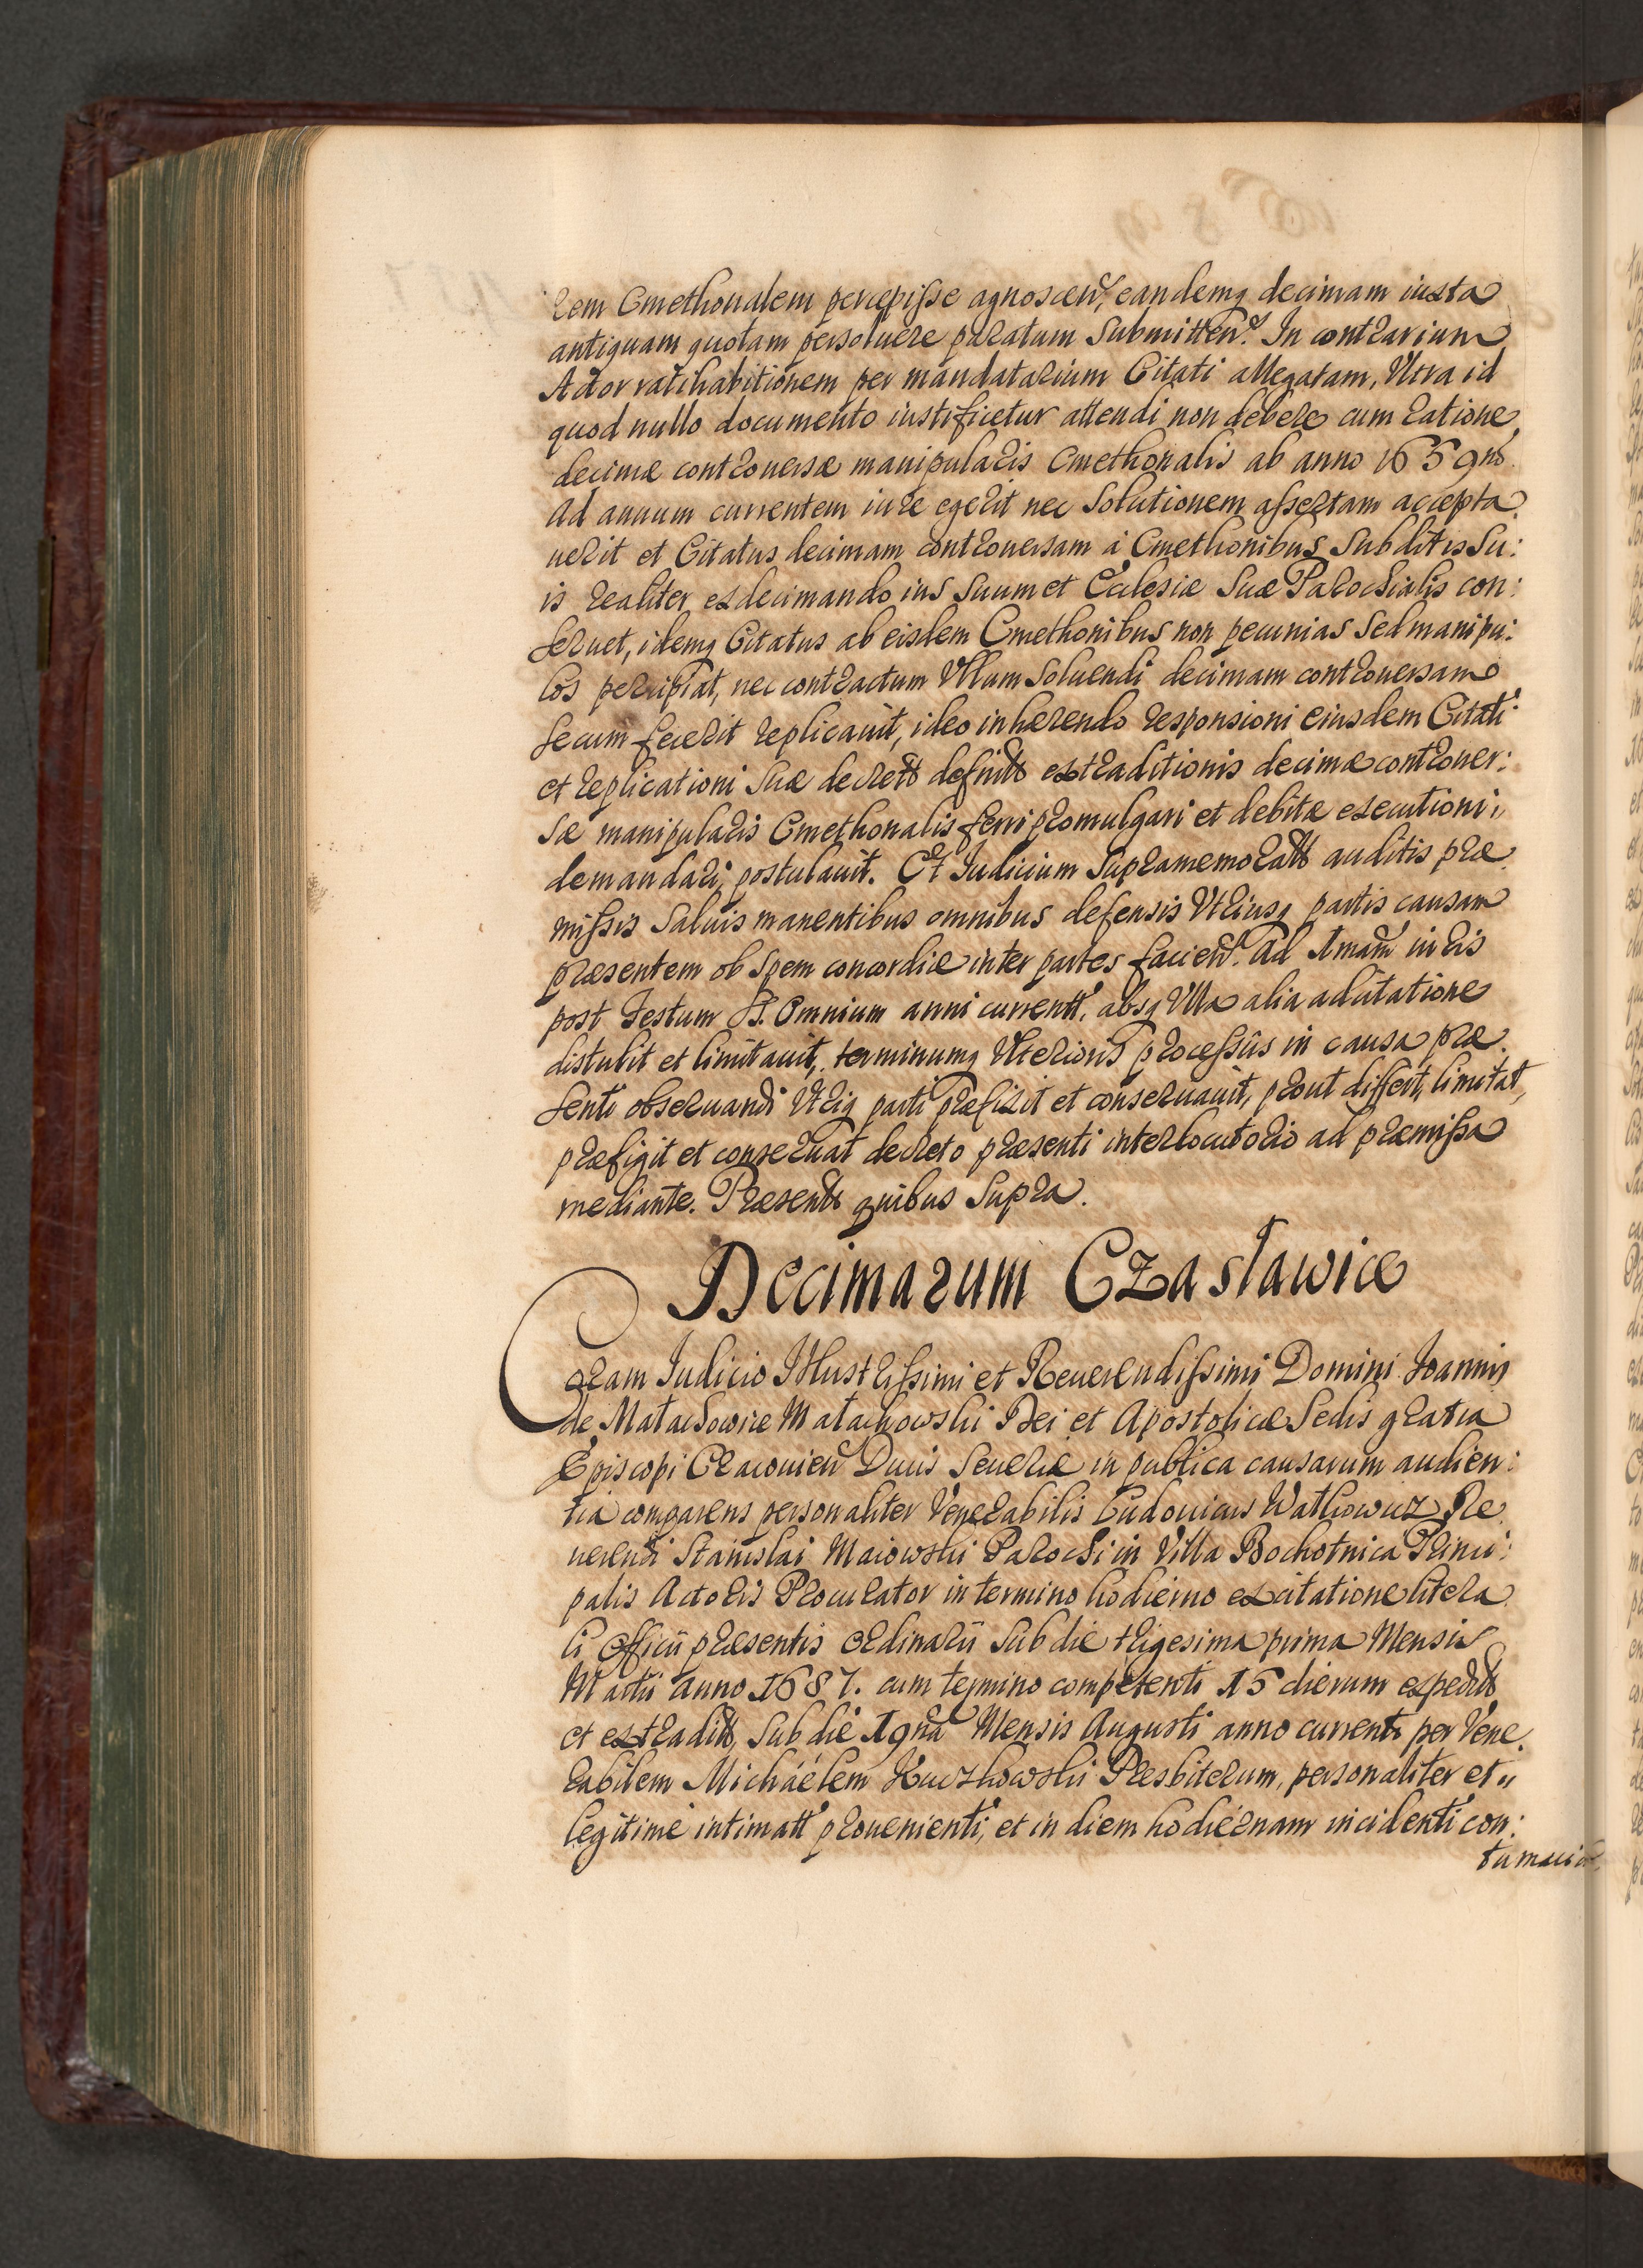 rem Cmethonalem percepisse agnoscen. eandemq decimam iuxta
antiquam quotam persoluere paratum Submitten. In contrarium
Actor ratihabitionem per mandatarium Citati allegatam, Ultra id
quod nullo documento iustificetur attendi non debere cum ratione
decimæ controuersæ manipularis Cmethonalis ab anno 1659no
Ad annum currentem iure egerit nec Solutionem assertam accepta
uerit et Citatus decimam controuersam à Cmethonibus Subditis Su:
is realiter exdecimando ius Suum et Ecclesiæ Suæ Parochialis con:
seruet, idemq Citatus ab eisdem Cmethonibus non pecunias Sed manipu:
los percipiat, nec contractum Ullum Soluendi decimam controuersam
Secum fecerit replicauit, ideo inhærendo responsioni eiusdem Citati
et replicationi Suæ decrett definitt extraditionis decimæ controuer:
Sæ manipularis Cmethonalis ferri promulgari et debitæ executioni
demandari, postulauit. Et Iudicium Supramemoratt auditis præ
missis Saluis manentibus omnibus defensis Utriusq partis causam
præsentem ob Spem concordiæ inter partes facien. Ad 1mam iuris
post Festum SS. Omnium anni currentt, absq Ulla alia adcitatione
distulit et limitauit, terminumq Ulterioris processûs in causa præ
senti obseruandi Utriq parti præfixit et conseruauit, prout differt, limitat,
præfigit et conseruat decreto præsenti interlocutorio ad præmissa
mediante. Præsentt quibus Supra.
Decimarum Czasławice
Coram Iudicio Illustrissimi et Reuerendissimi Domini Joannis
de Małachowice Małachowski Dei et Apostolicæ Sedis gratia
Episcopi Cracouien Ducis Seueriæ in publica causarum audien:
tia comparens personaliter Venerabilis Ludouicus Wathowicz Re
uerendi Stanislai Maiowski Parochi in Villa Bochotnica Princi:
palis Actoris Procurator in termino hodierno ex citatione litera
li Officii præsentis Ordinarii Sub die trigesima prima Mensis
Martii Anno 1687. cum termino competenti 15 dierum expeditt
et extraditt, Sub die 19na Mensis Augusti anno currentt per Vene
rabilem Michäelem Kuczkowski Presbiterum, personaliter et
legitimè intimatt prouenienti, et in diem hodiernam incidenti con:
tumaciam